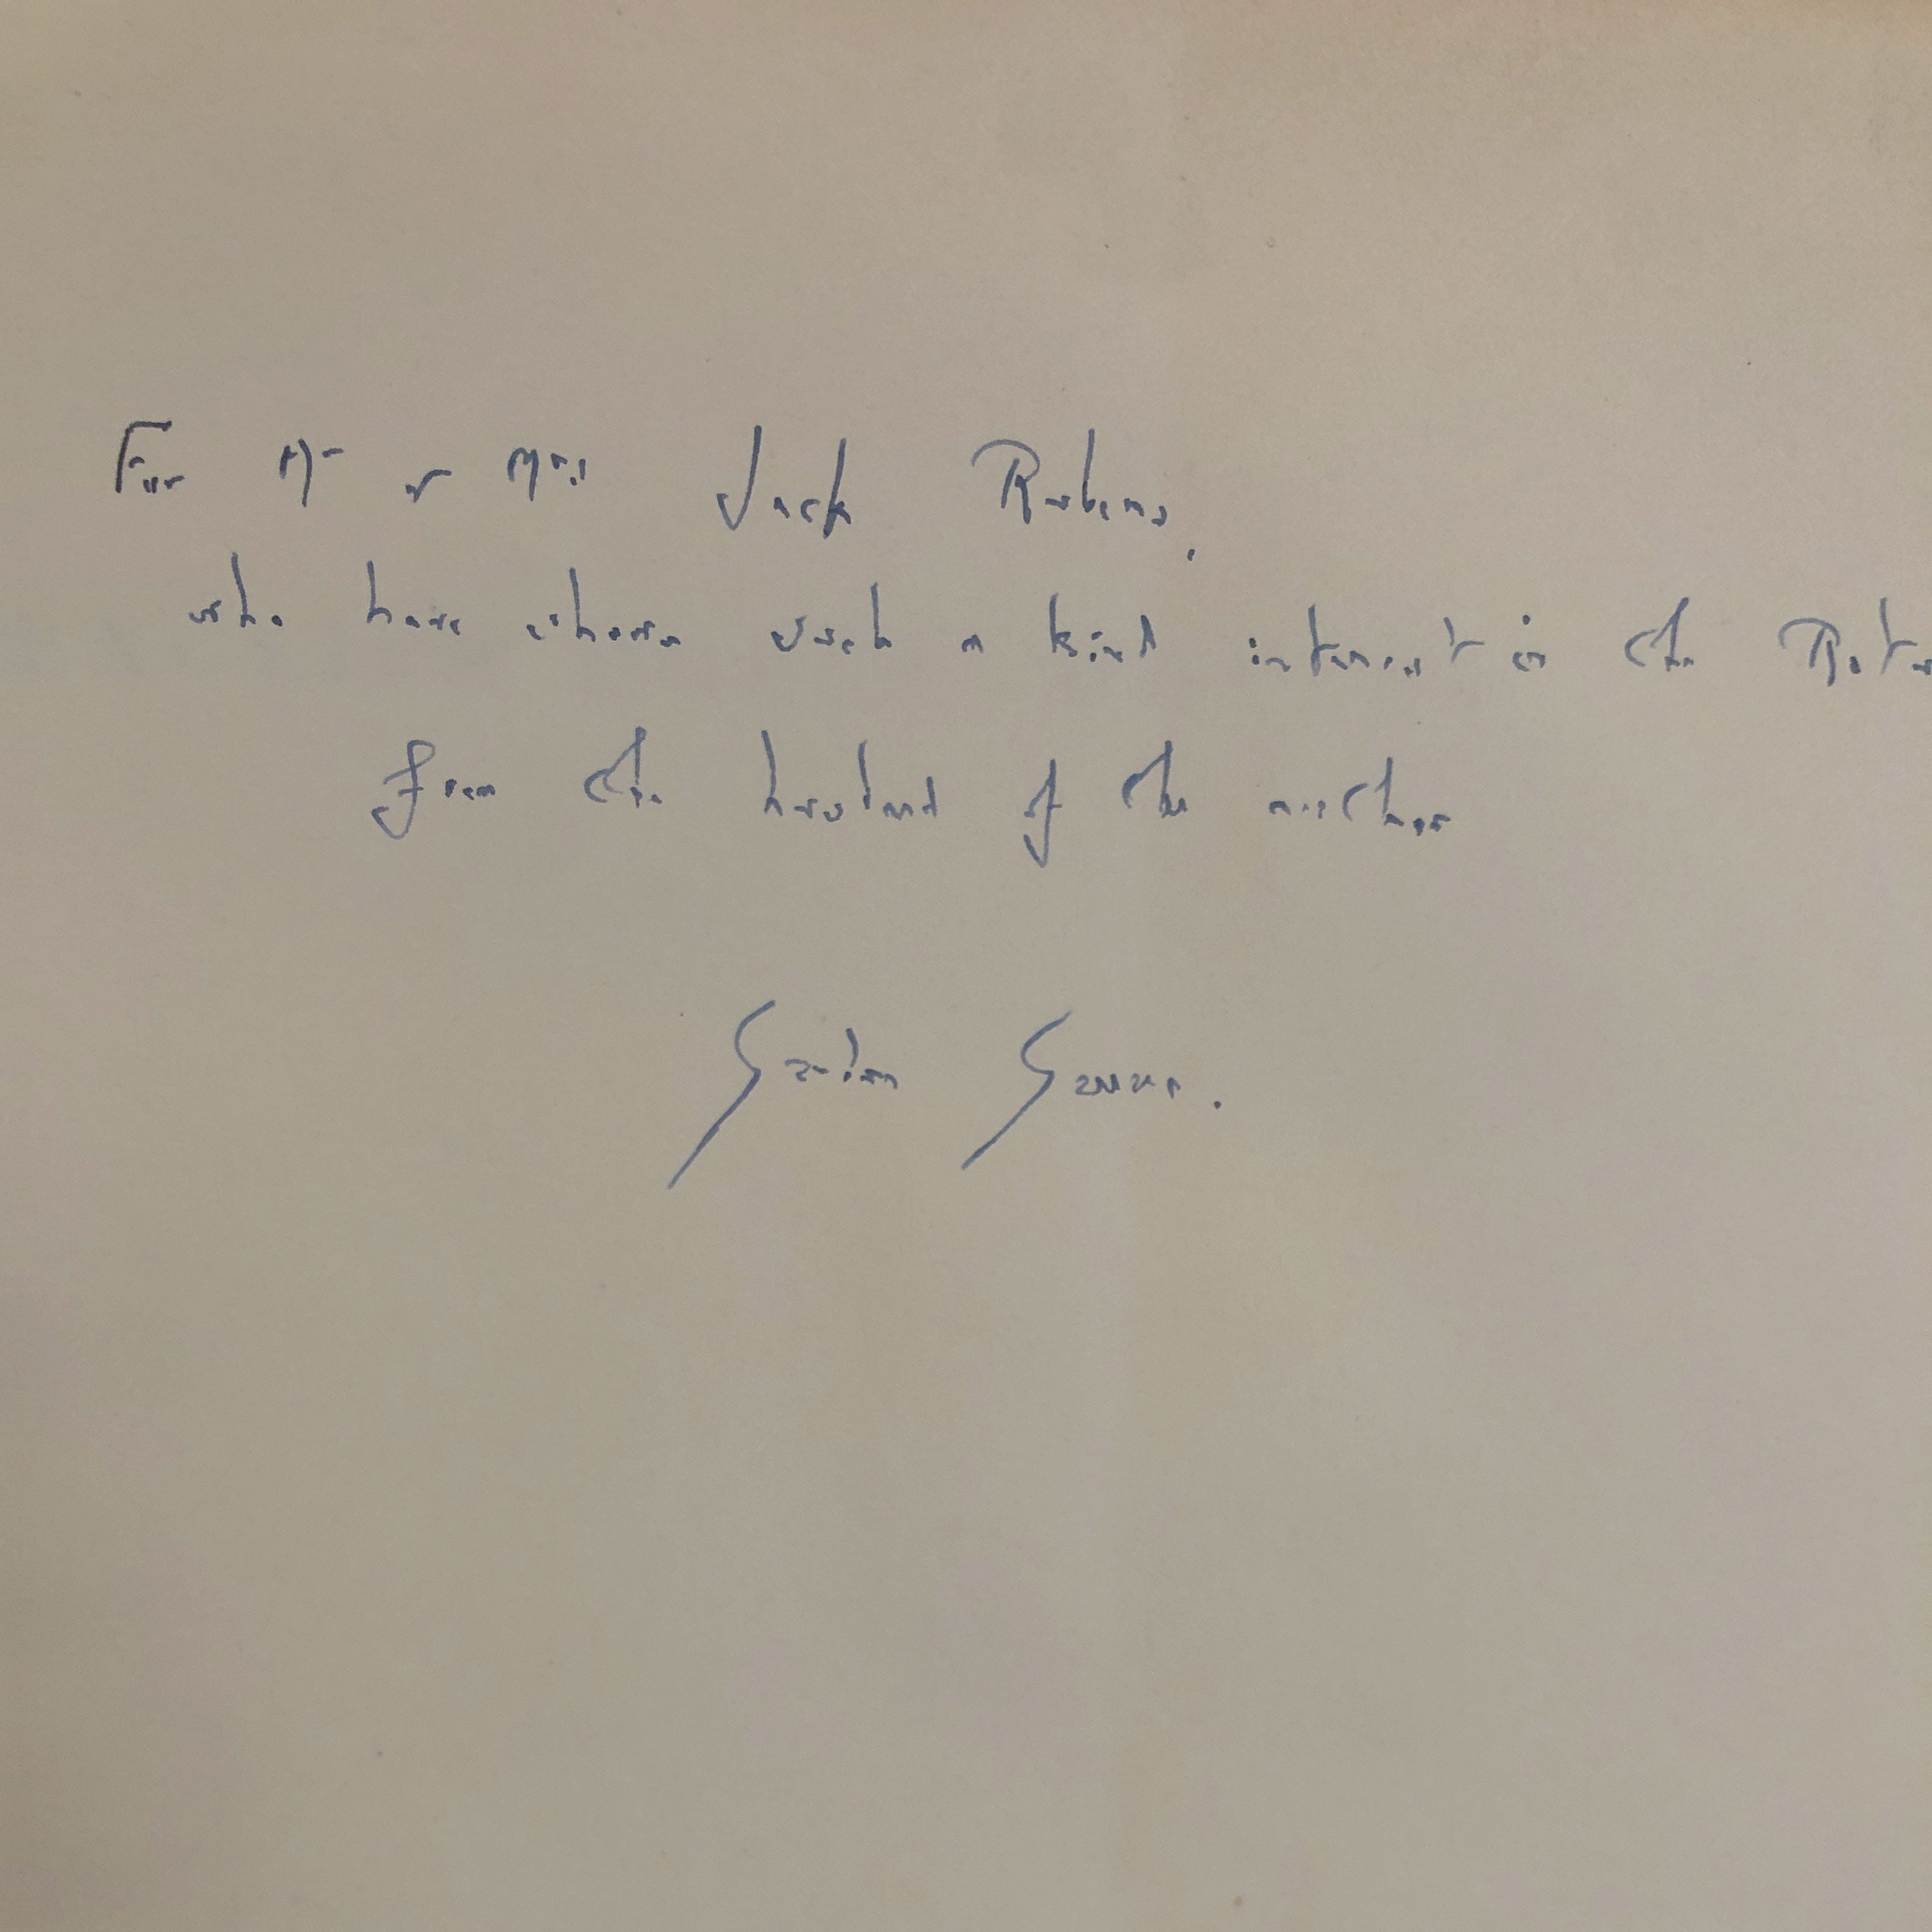 For Mr & Mrs Jack Rubens,
who have shown such a kind interest in the
from the husband of the author